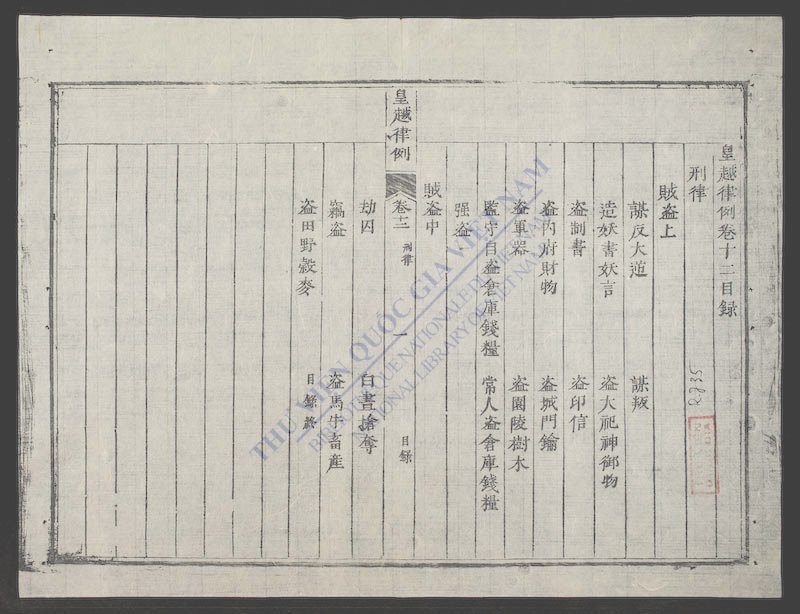 皇越律例卷十二目録
刑律
賊盗上
謀反大逆 謀叛
造妖書妖言 盗大祀神御物
盗制書 盗印信
盗内府財物 盗城門鑰
盗軍器 盗園陵樹木
監守自盗倉庫錢糧 常人盗倉庫錢糧
强盗
賊盗中
皇越律例 卷十二 刑律 一 目録
劫囚 白晝搶奪
竊盗 盗馬牛畜産
盗田野穀麥 目録終
THƯ VIỆN QUỐC GIA VIỆT NAM
BIBLIOTHEQUE NATIONALE DU VIETNAM
NATIONAL LIBRARY OF VIETNAM